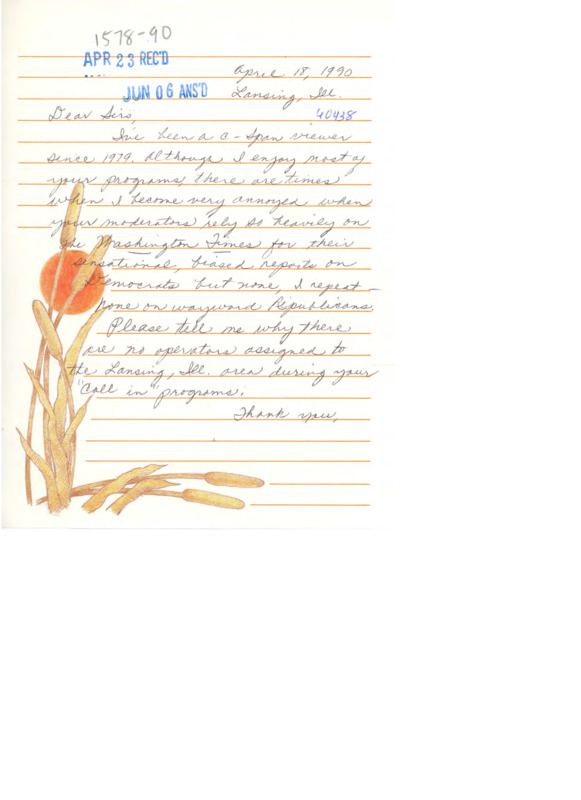 1578-90
APR 23 REC'D
April 18, 1990
JUN 06 ANS'D
Lansing, Ill.
Dear Sirs,
40438
I've been a C-Span viewer
since 1979. Although I enjoy most of
your programs, there are times
when I become very annoyed when
your moderators rely so heavily on
the Washington Times for their
sensational, biased reports on
Democrats but none, I repeat
none on wayword Republicans.
Please tell me why there
are no operators assigned to
the Lansing, Ill. area during your
"Call in" programs.
Thank you,